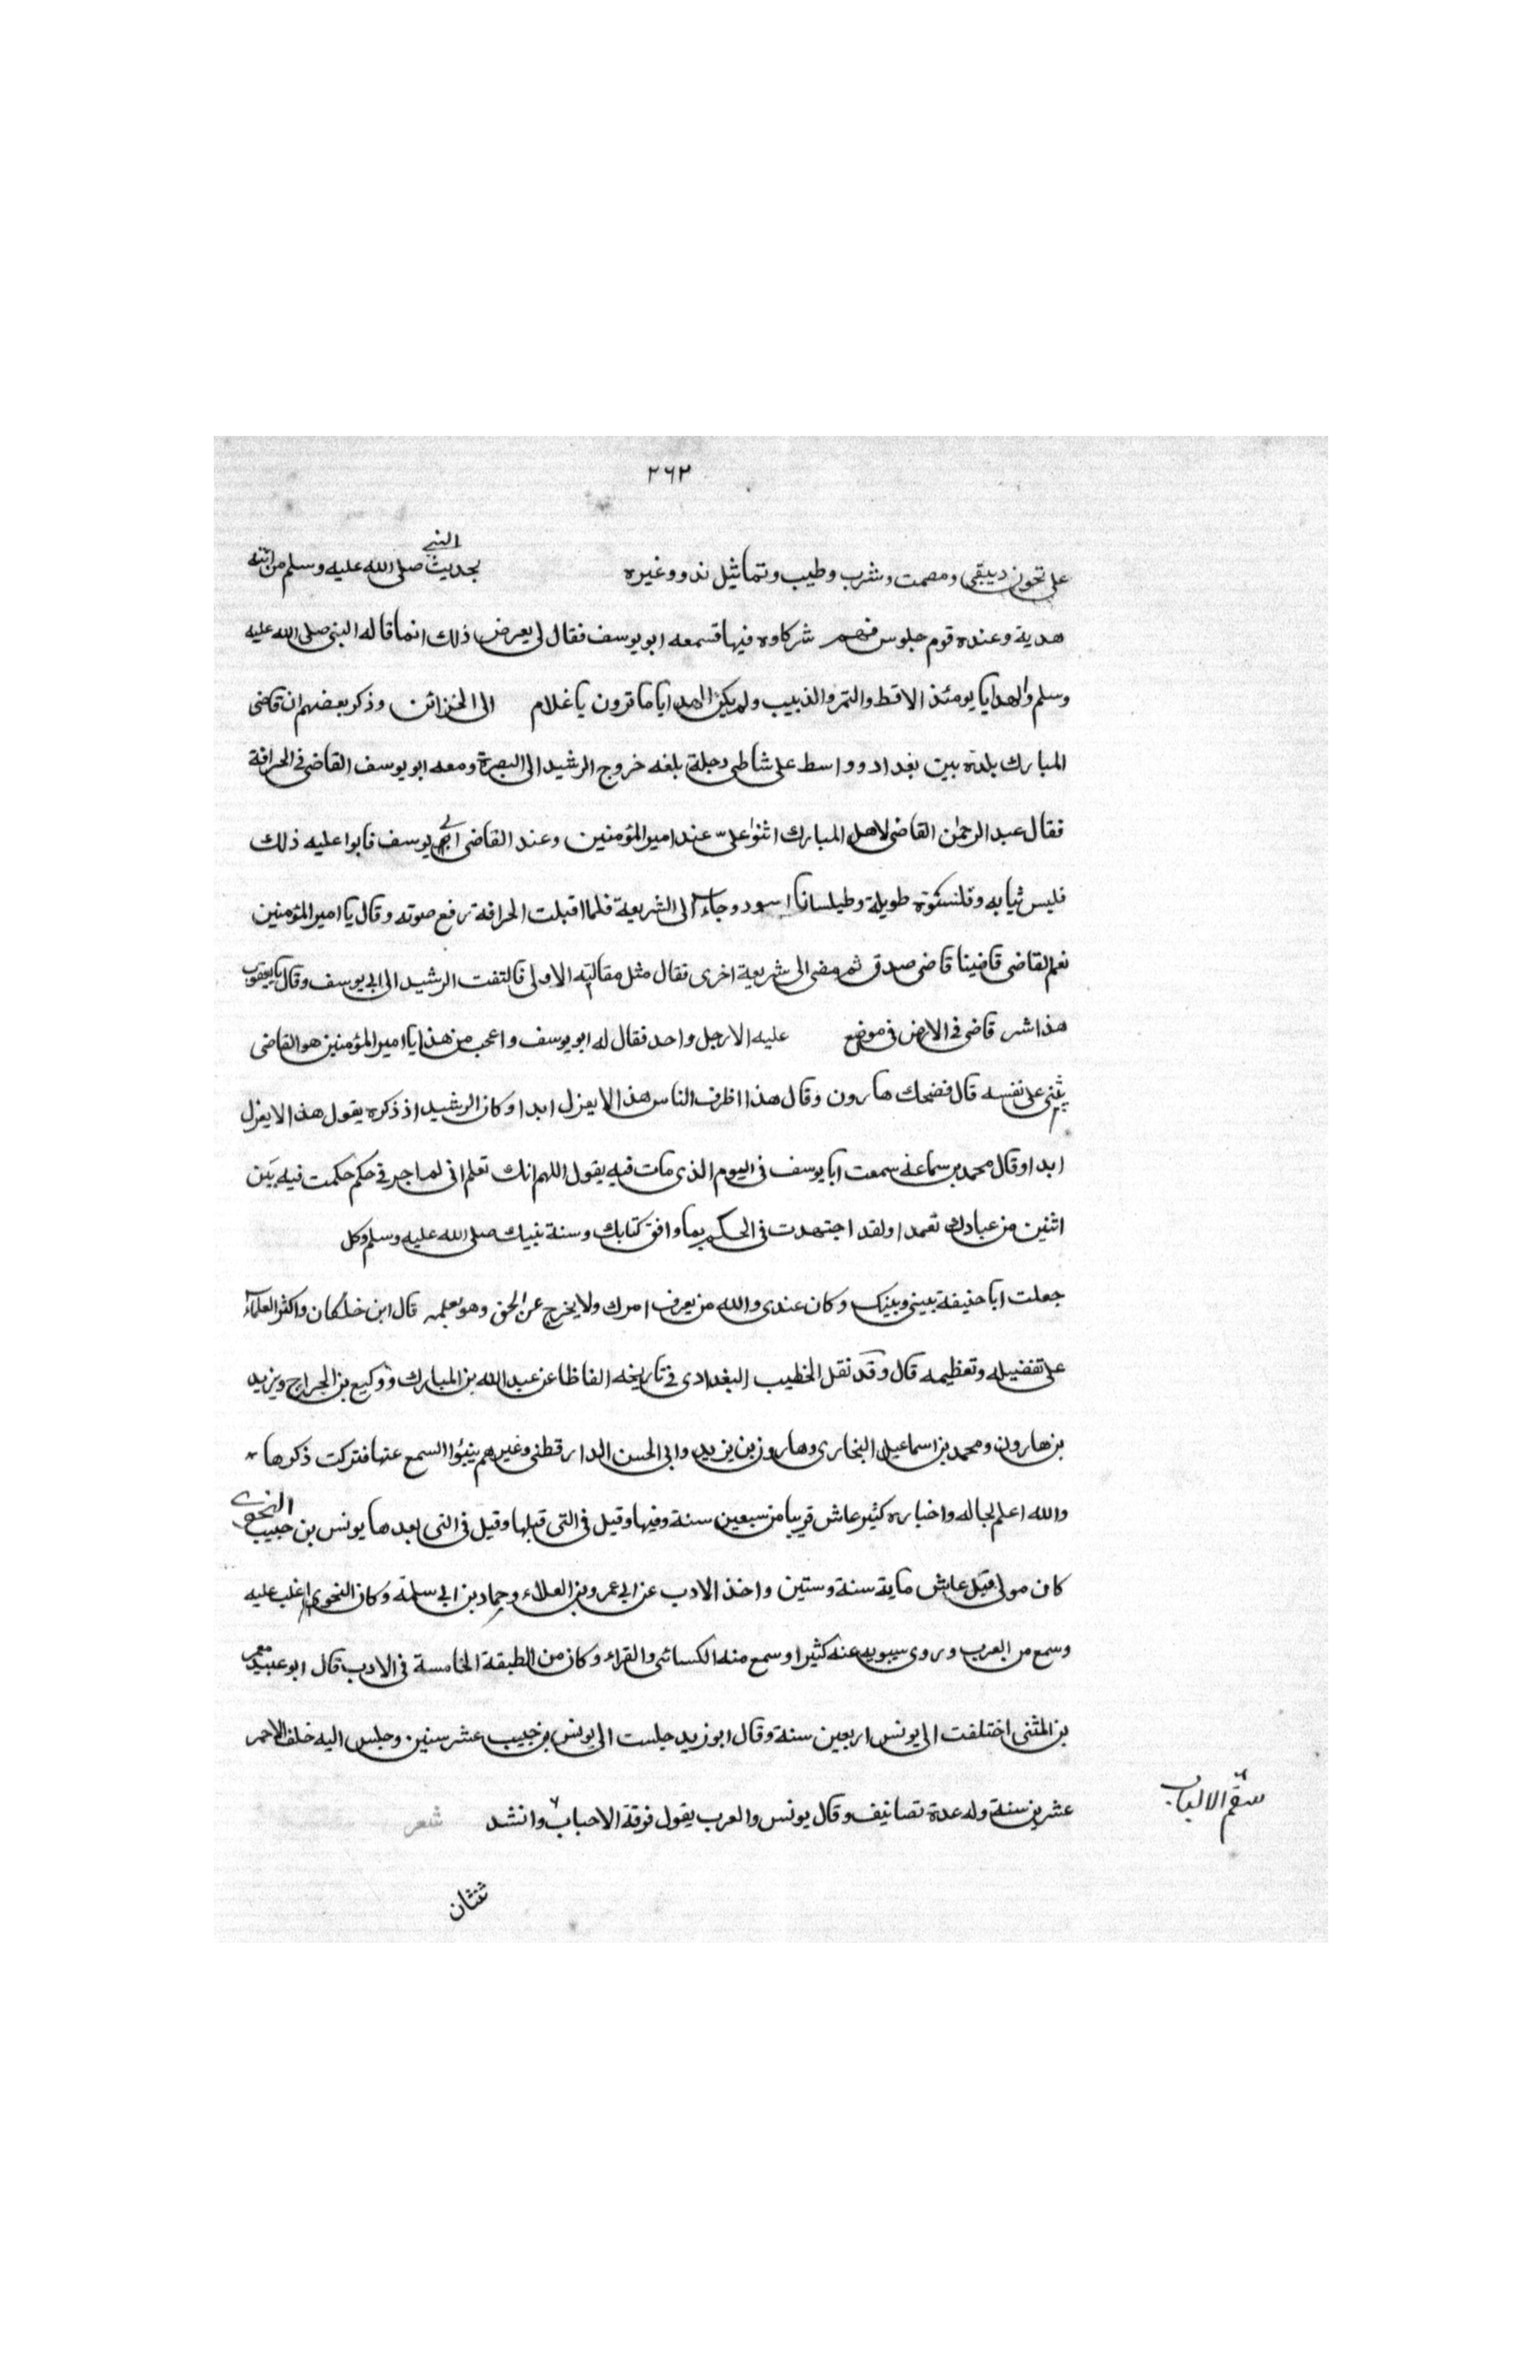 ٢٦٢
على تخون ديبقى ومصمت وشرب وطيب وتماثيل ند وغيره بحديث النبي صلى الله عليه وسلم من اتته
هدية وعنده قوم جلوس فهم شركاوه فيها قسمعه ابو يوسف فقال لى يعرض ذلك انما قاله النبى صلى الله عليه
وسلم والهدايا يومئذ الاقط والتمر والذبيب ولم يكن الهدايا ما ترون يا غلام الى الخزائن وذكر بعضهم ان قاضى
المبارك بلدة بين بغداد وواسط على شاطى دجلة بلغه خروج الرشيد الى البصرة ومعه ابو يوسف القاضى فى الحراقة
فقال عبد الرحمن القاضى لاهل المبارك اثنوا على عند امير المؤمنين وعند القاضى ابى يوسف فابوا عليه ذلك
فلبس ثيابه وقلنسوة طويلة وطيلسانا اسود وجاء الى الشريعة فلما اقبلت الحراقة رفع صوته وقال يا امير المؤمنين
نعم القاضى قاضينا قاضى صدق ثم مضى الى شريعة اخرى فقال مثل مقالته الاولى فالتفت الرشيد الى ابى يوسف وقال يا يعقوب
هذا شر قاضى فى الارض فى موضع عليه الا رجل واحد فقال له ابو يوسف واعجب من هذا يا امير المؤمنين هو القاضى
يثنى على نفسه قال فضحك هارون وقال هذا اظرف الناس هذا لا يعزل ابدا وكان الرشيد اذ ذكره يقول هذا لا يعزل
ابدا وقال محمد بن سماعة سمعت ابا يوسف فى اليوم الذى مات فيه يقول اللهم انك تعلم انى لم اجر فى حكم حكمت فيه بين
اثنين من عبادك تعمدا ولقد اجتهدت فى الحكم بما وافق كتابك وسنة نبيك صلى الله عليه وسلم وكل
جعلت ابا حنيفة بينى وبينك وكان عندى والله من يعرف امرك ولا يخرج عن الحق وهو يعلمه قال ابن خلكان واكثر العلماء
على تفضيله وتعظيمه قال وقد نقل الخطيب البغدادى فى تاريخه الفاظا عن عبد الله بن المبارك ووكيع بن الجراح ويزيد
بن هارون ومحمد بن اسماعيل البخارى وهارون بن يزيد وابى الحسن الدارقطنى وغيرهم ينبؤا السمع عنها فتركت ذكرها
والله اعلم بحاله واخباره كثير عاش قريبا من سبعين سنة وفيها وقيل فى التى قبلها وقيل فى التى بعدها يونس بن حبيب النحوى
كان مولى قيل عاش ماية سنة وستين واخذ الادب عن ابى عمرو بن العلاء وحماد بن ابى سلمة وكان النحوى اغلب عليه
وسمع من العرب وروى سيبويه عنه كثيرا وسمع منه الكسائى والفراء وكان من الطبقة الخامسة فى الادب قال ابو عبيد معمر
بن المثنى اختلفت الى يونس اربعين سنة وقال ابو زيد جلست الى يونس بن حبيب عشر سنين وجلس اليه خلف الاحمر
عشرين سنة وله عدة تصانيف وقال يونس والعرب يقول فرقة الاحباب وانشد شعر
سقم الالباب
ثنتان